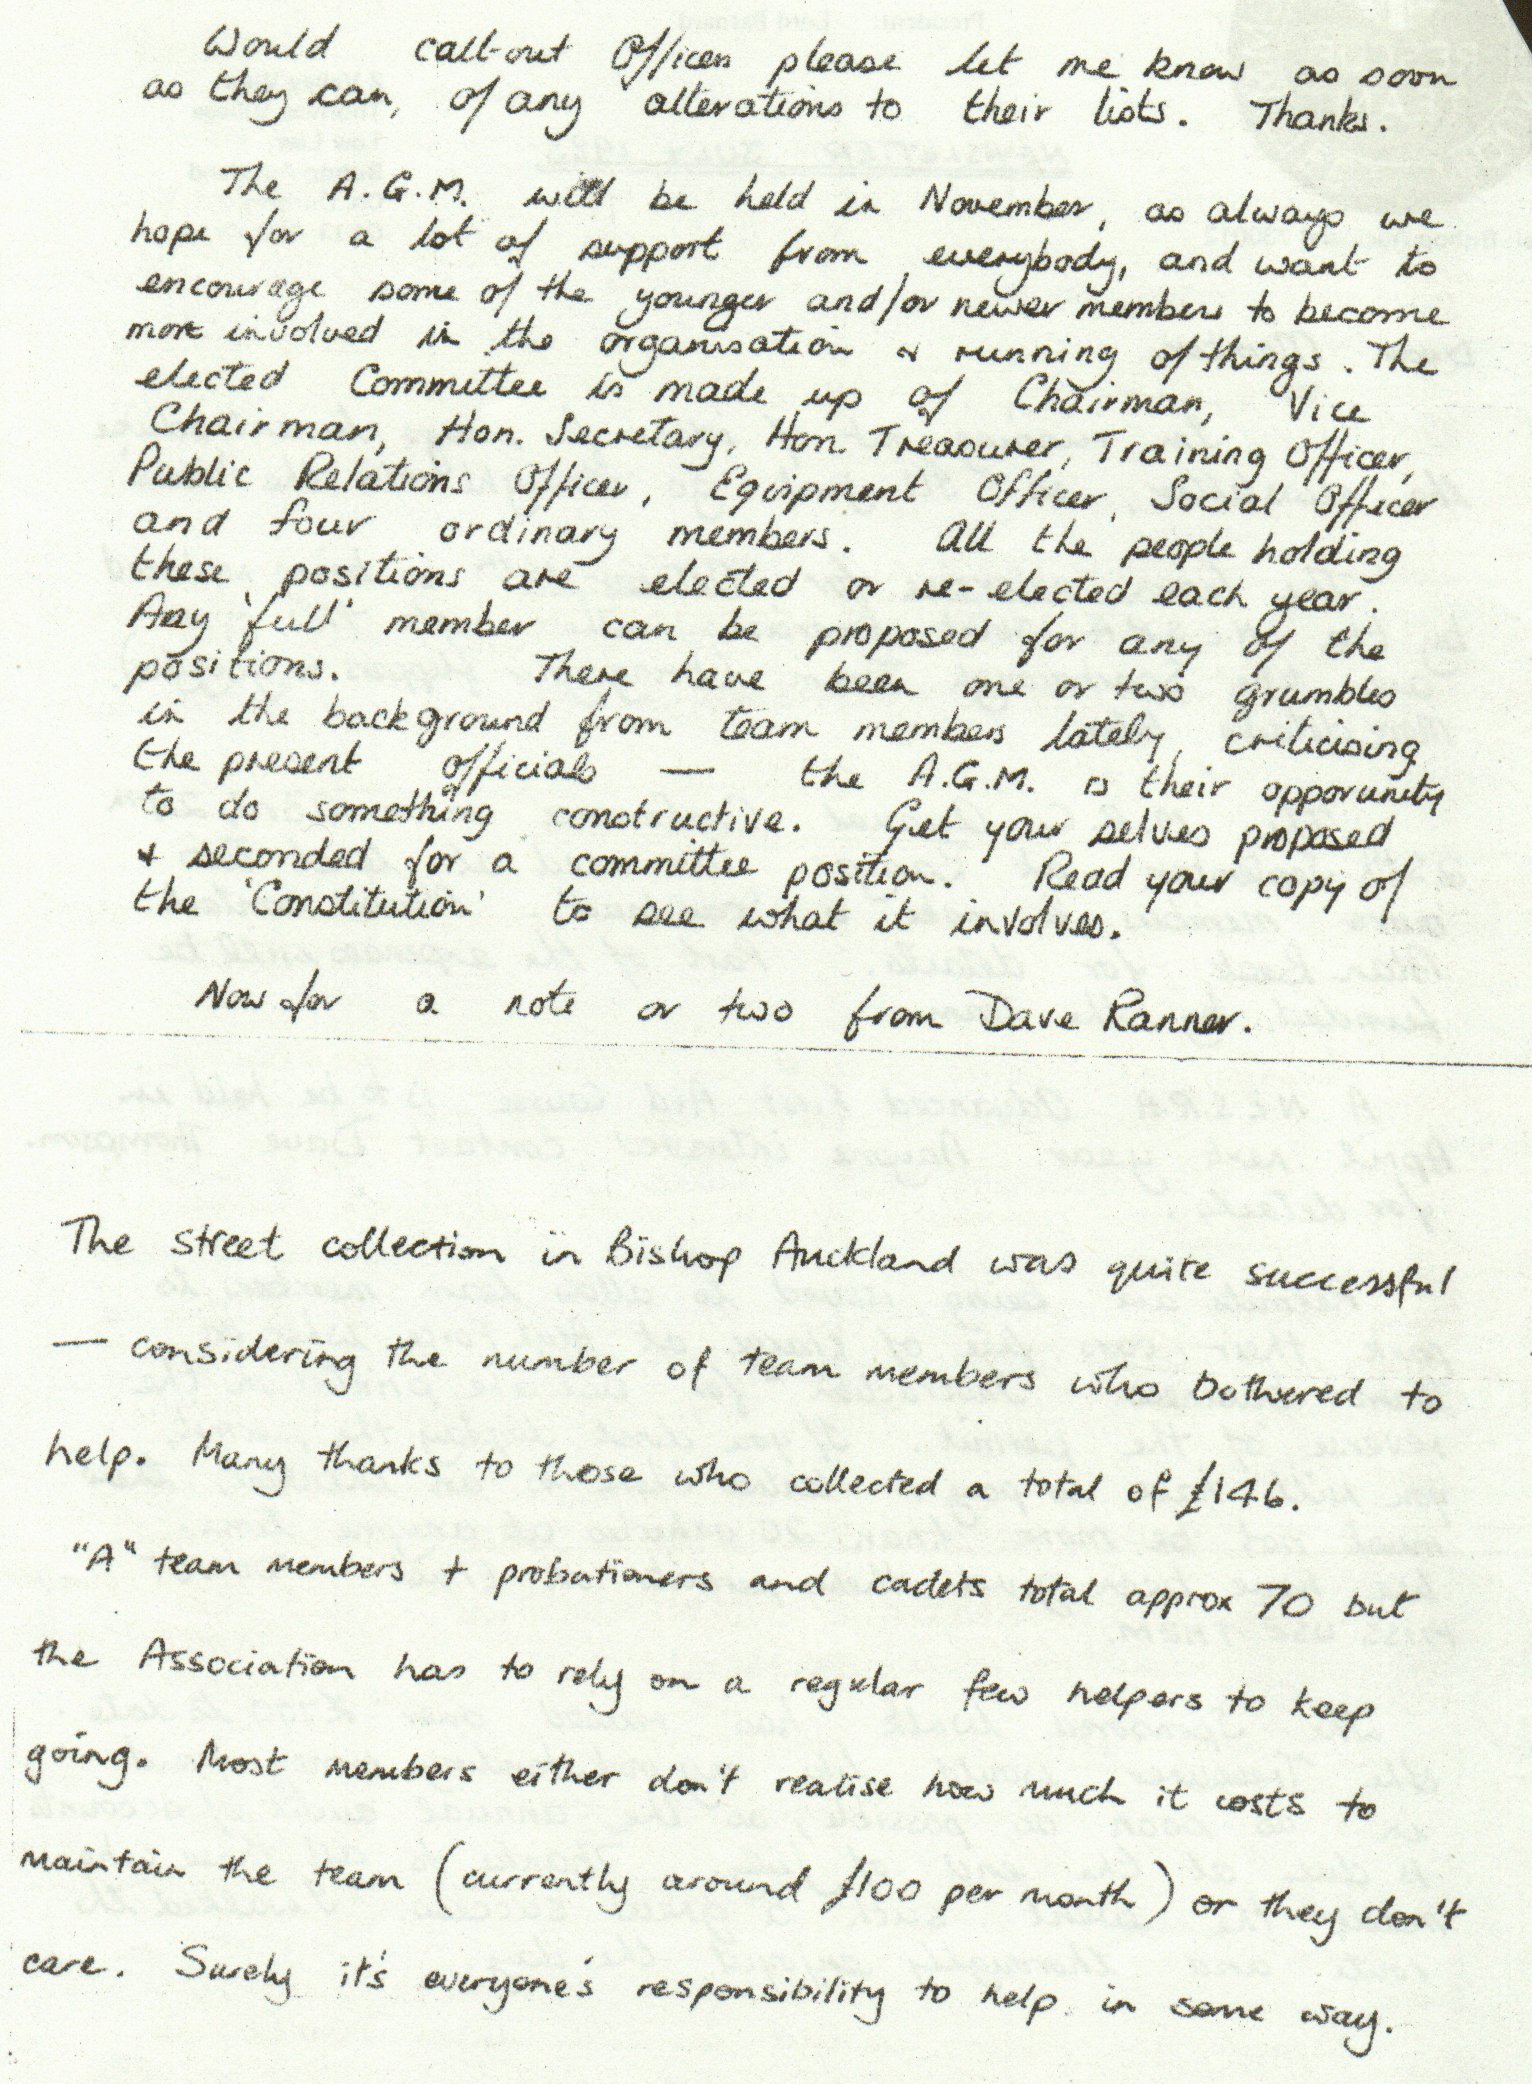 Would call-out Officers please let me know as soon
as they can, of any alterations to their lists. Thanks.
The A.G.M. will be held in November, as always we
hope for a lot of support from everybody, and want to
encourage some of the younger and/or newer members to become
more involved in the organisation & running of things. The
elected Committee is made up of Chairman, Vice
Chairman, Hon. Secretary, Hon Treasurer, Training Officer,
Public Relations Officer, Equipment Officer, Social Officer
and four ordinary members. All the people holding
these positions are elected or re-elected each year.
Any 'full' member can be proposed for any of the
positions. There have been one or two grumbles
in the background from team members lately, criticising
the present officials — the A.G.M. is their opporunity
to do something constructive. Get your selves proposed
& seconded for a committee position. Read your copy of
the 'Constitution' to see what it involves.
Now for a note or two from Dave Ranner.
The street collection in Bishop Auckland was quite successful
— considering the number of team members who bothered to
help. Many thanks to those who collected a total of £146.
"A" team members + probationers and cadets total approx 70 but
the Association has to rely on a regular few helpers to keep
going. Most members either don't realise how much it costs to
maintain the team (currently around £100 per month) or they don't
care. Surely it's everyone's responsibility to help in some way.